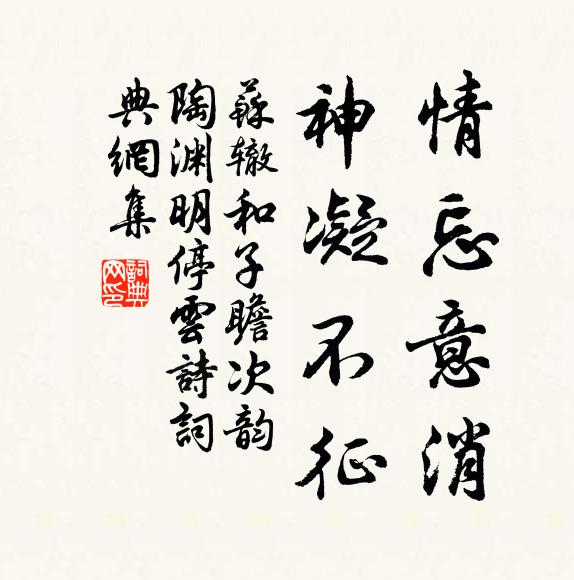 情忘意消
神凝不征
蘇轍和子瞻次韵
陶渊明停雲詩詞
典網集
詞典
网印